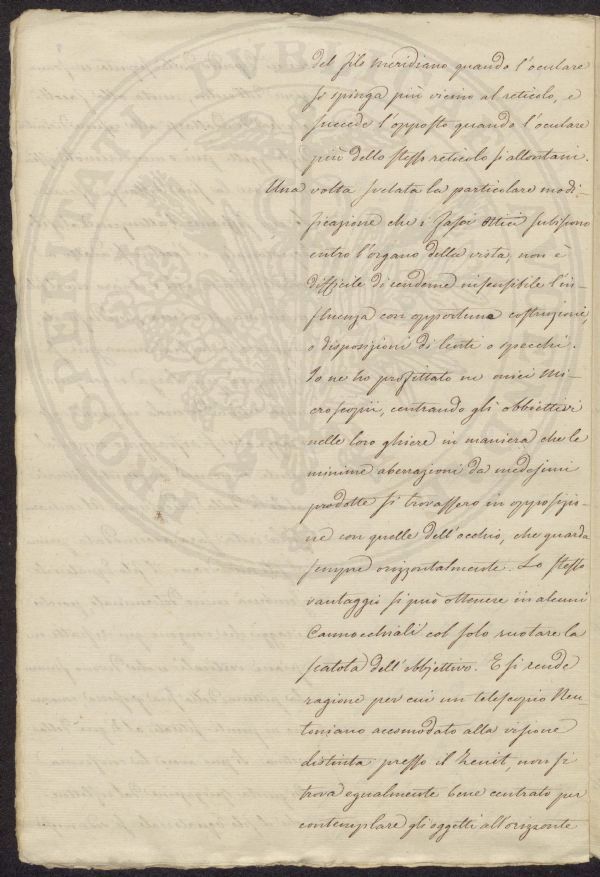 del filo meridiano quando l'oculare
si spinga più vicino al reticolo, e
succede l'opposto quando l'oculare
più dello stesso reticolo si allontani.
Una volta svelata la particolare modi-
ficazione che i fasci ottici subiscono
entro l'organo della vista, non è
difficile di renderne insensibile l'in-
fluenza con opportune costruzioni,
o disposizioni di lenti o specchi.
Io ne ho profittato ne miei Mi-
croscopii, centrando gli obbiettivi
nelle loro ghiere in maniera che le
minime aberrazioni da medesimi
prodotte si trovassero in opposizio-
ne con quelle dell'occhio, che guarda
sempre orizzontalmente. Lo stesso
vantaggio si può ottenere in alcuni
Cannocchiali col solo ruotare la
scatola dell'obbjettivo. E si rende
ragione per cui un telescopio Neu-
toniano accomodato alla visione
distinta presso il Zenit, non si
trova egualmente bene centrato per
contemplare gli oggetti all'orizzonte